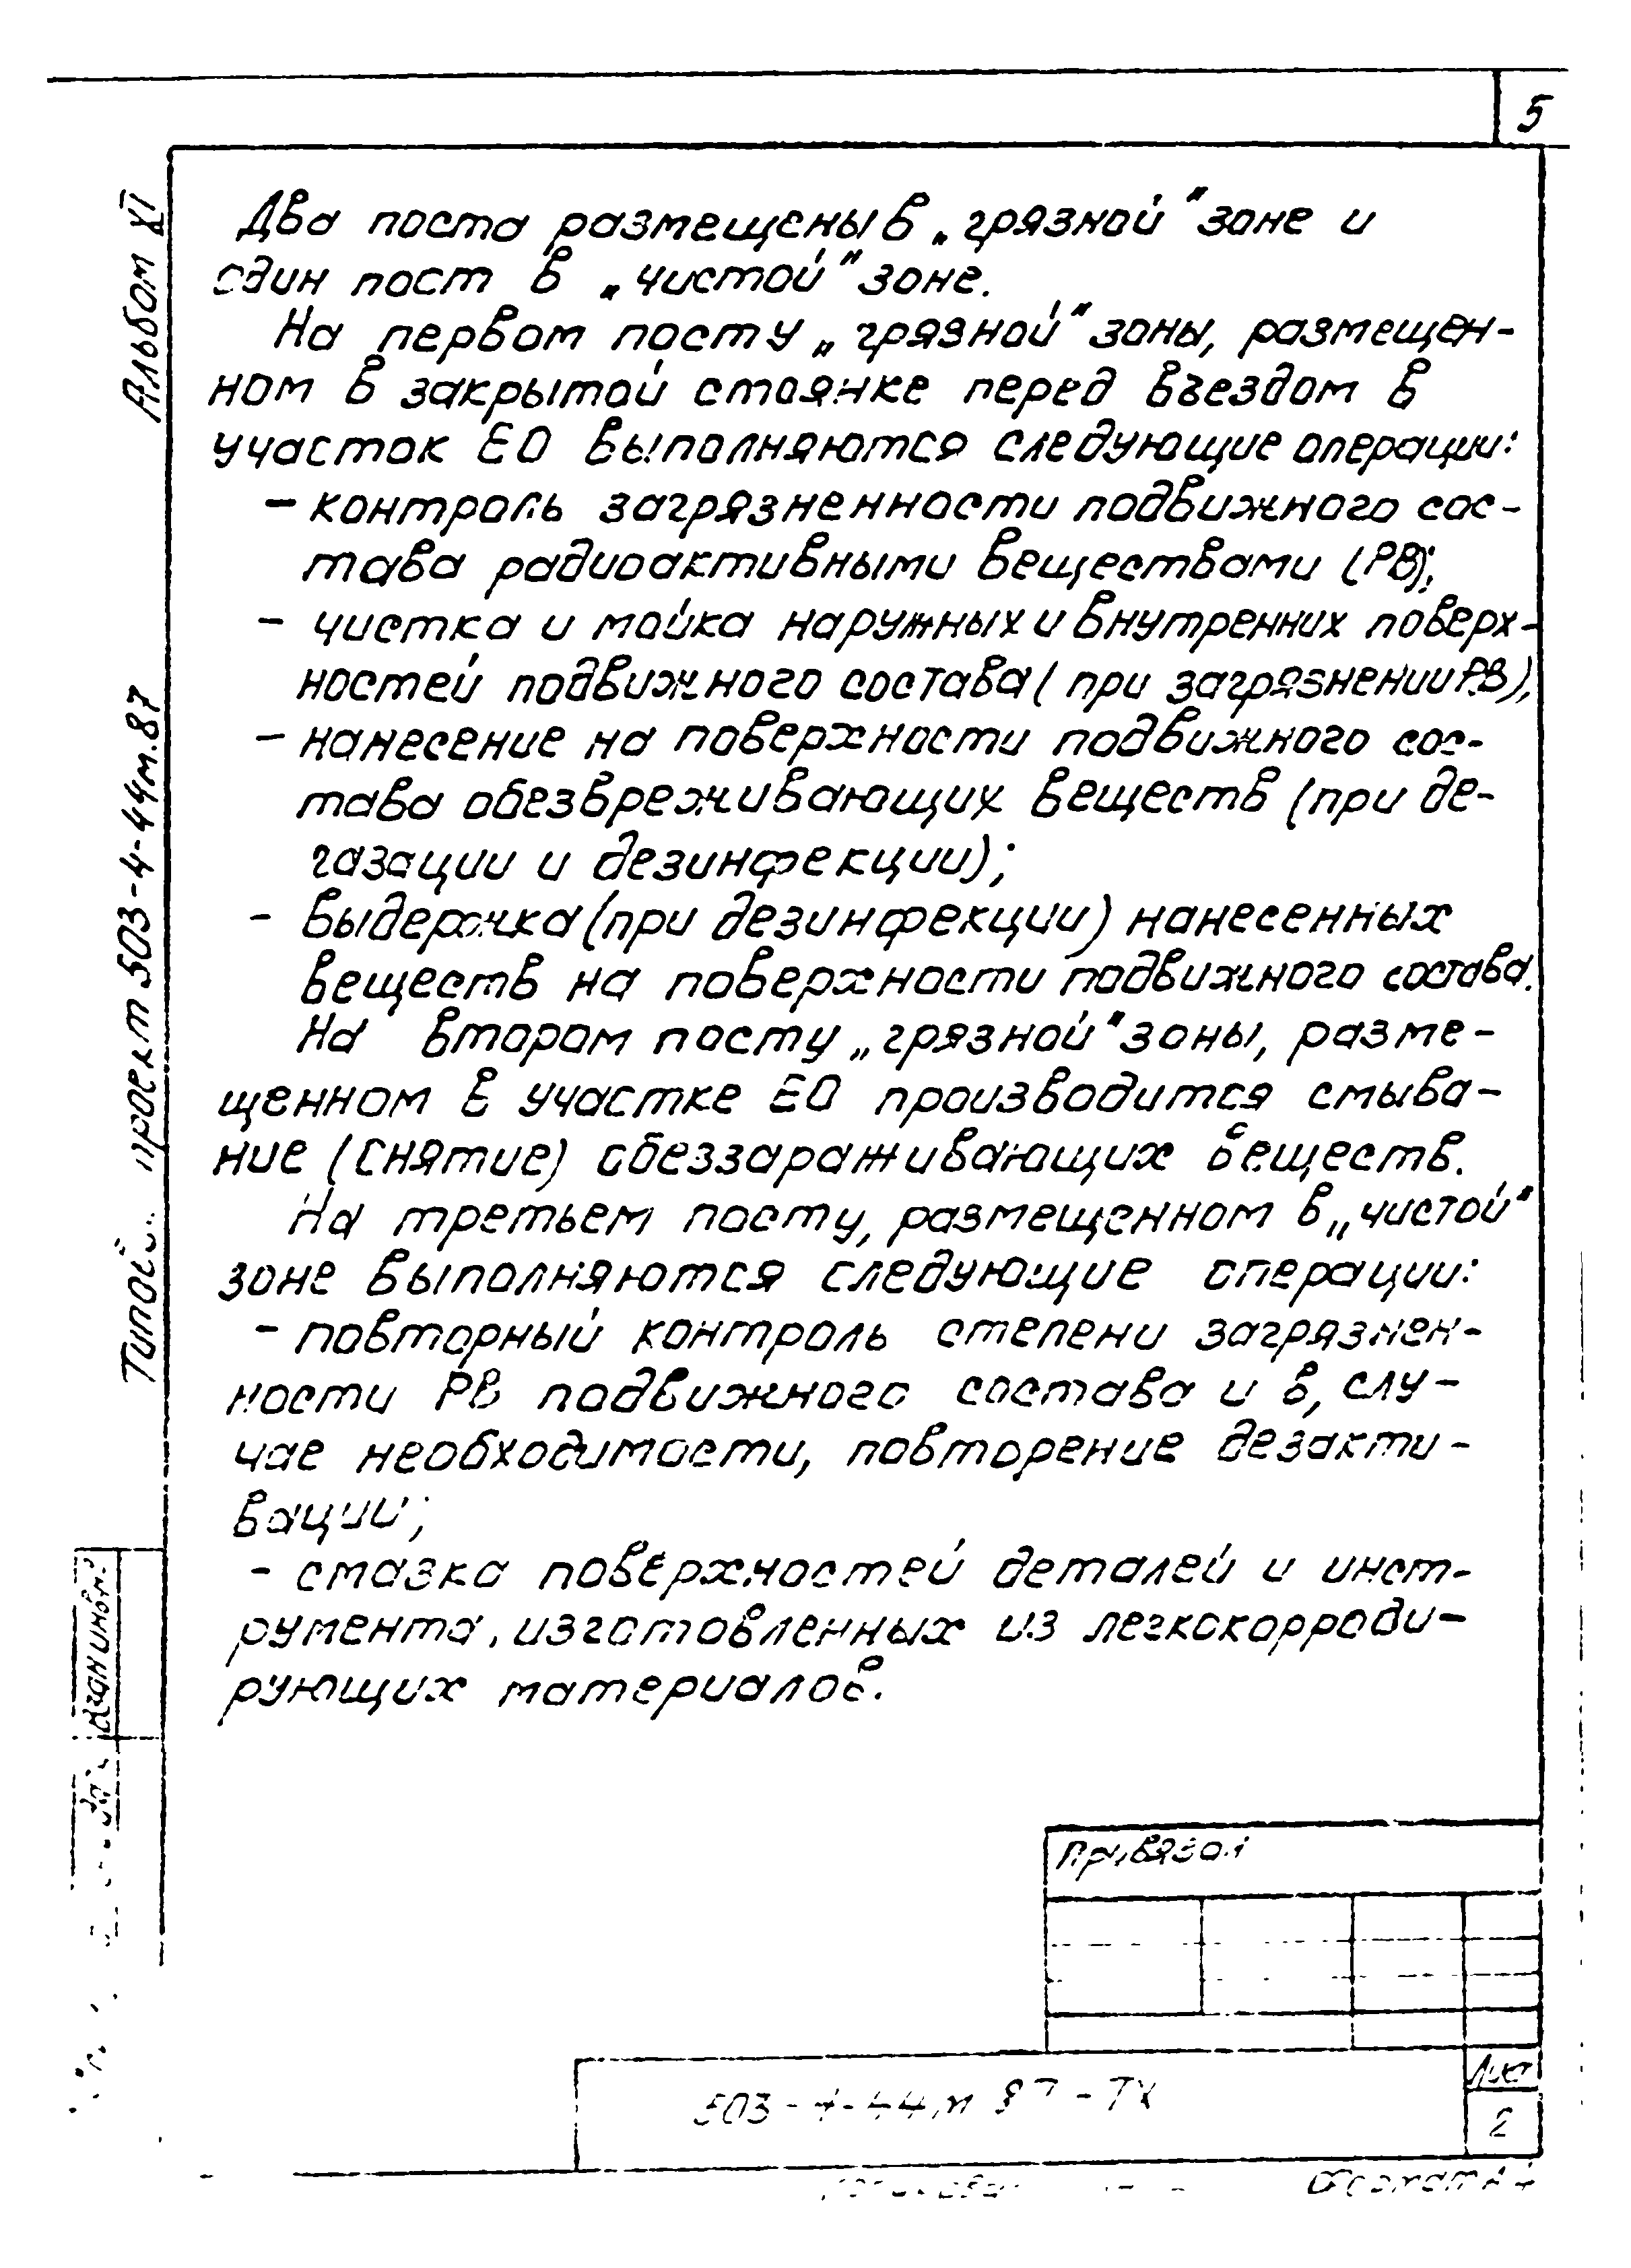 5
Два поста размещены в „грязной" зоне и
один пост в „чистой" зоне.
На первом посту „грязной" зоны, размещен-
ном в закрытой стоянке перед въездом в
участок ЕО выполняются следующие операции:
- контроль загрязненности подвижного сос-
тава радиоактивными веществами (РВ);
- чистка и мойка наружных и внутренних поверх-
ностей подвижного состава (при загрязнении РВ),
- нанесение на поверхности подвижного сос-
тава обезвреживающих веществ (при де-
газации и дезинфекции);
- выдержка (при дезинфекции) нанесенных
веществ на поверхности подвижного состава.
На втором посту „грязной" зоны, разме-
щенном в участке ЕО производится смыва-
ние (снятие) обеззараживающих веществ.
На третьем посту, размещенном в „чистой"
зоне выполняются следующие операции:
- повторный контроль степени загрязнен-
ности РВ подвижного состава и в, слу-
чае необходимости, повторение дезакти-
вации;
- смазка поверхностей деталей и инст-
румента, изготовленных из легкокорроди-
рующих материалов.
Альбом XI
проект 503-4-44м.87
Взам инв.
Привязан
503-4-44м 87-ТХ
Лист
2
Формат А4